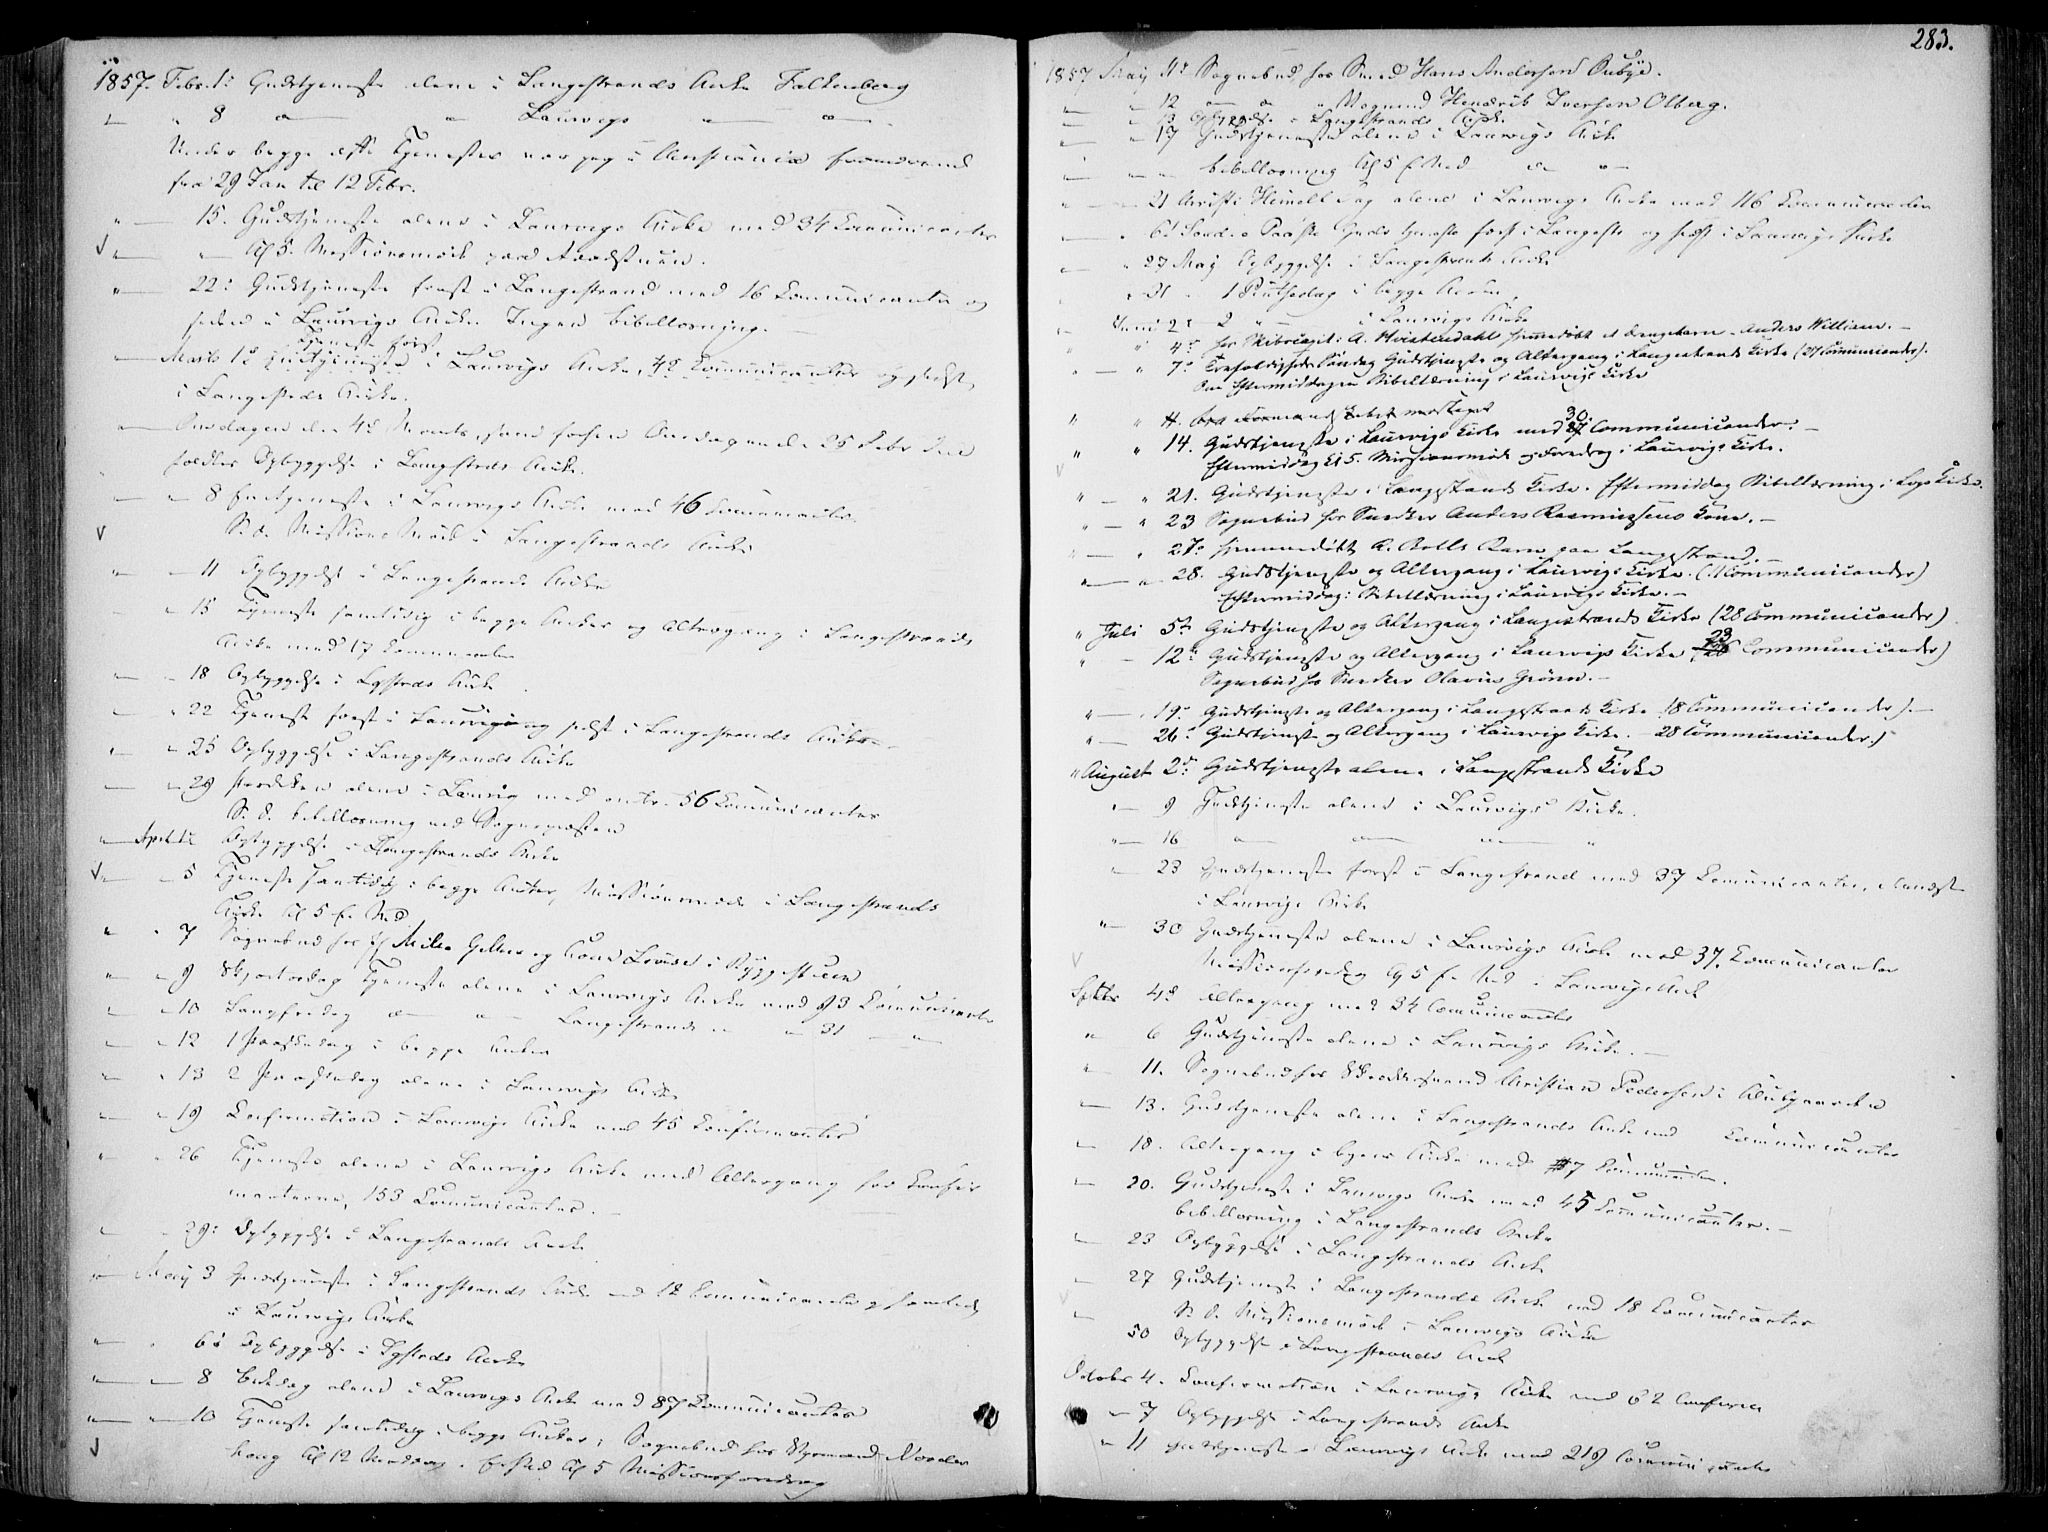 1857. Febr. 1: Gudstjeneste alene i Langestrands Kirke Falkenberg
" " 8 " " Laurvigs " "
Under begge disse Tjenester var jeg i Christiania fraværende
fra 29 Jan til 12 Febr.
" 15. Gudstjeneste alene i Laurvigs Kirke med 34 Communicanter
" " Kl 5. Missionsmøde paa Raadstuen.
" 22: Gudstjeneste først i Langestrand med 16 Communicanter og
siden i Laurvigs Kirke. Ingen Bibellæsning.
Marts 1: Tjeneste først i Laurvigs Kirke, Communicanter og sidst
i Langestrds Kirke.
Onsdagen den 4de Marts, samt forhen Onsdagen den 25 Febr
holdtes Opbyggelse i Langestrds Kirke.
" 8 Tjeneste i Laurvigs Kirke med 46 Communicanter
S. D. Missions Møde i Langestrands Kirke
" 11 Opbyggelse i Langestrands Kirke
" 15 Tjeneste samtidig i begge Kirker og Altergang i Langestrands
Kirke med 17 Communicanter
" 18 Opbyggelse i Kirke
" 22 Tjeneste først i Laurvig og sidst i Langestrands Kirke
" 25 Opbyggelse i Langestrands Kirke
" 29 Prædiken alene i Laurvig med 56 Communicanter
S. D. Bibellæsning ved Sognepræsten
" April 1 Opbyggelse i Langestrands Kirke
" 5 Tjeneste samtidig i begge Kirker, Missionsmøde i Langestrands
Kirke Kl 5 E. Mid
" 7 Sognebud hos
" 9 Skjærtorsdag Tjeneste alene i Laurvigs Kirke med 93 Communicanter
" 10 Langfredag " " Langestrands " " 31 "
" 12 1 Paaskedag i begge Kirker
" 13 2 Paaskedag alene i Laurvigs Kirke
" 19 Confirmation i Laurvigs Kirke med 45 Confirmanter
" 26 Tjeneste alene i Laurvigs Kirke med Altergang for Confir
manterne, 153 Communicanter.
" 29: Opbyggelse i Langestrands Kirke
" May 3 Gudstjeneste i Langestrands Kirke med 12 Communicanter og samtidig
i Laurvigs Kirke
" 6: Opbyggelse i Kirke
" 8 Bededag alene i Laurvigs Kirke med 87 Communicanter
" 10 Tjeneste samtidig i begge Kirker; Sognebud hos Styrmand
Kl 12 Middag. Kl 5 Missionsforedrag
283.
1857 May 11: Sognebud hos Smed Hans Andersen
" 12 " " Vognmd Hendrik Iversen Olberg.
" 13 Opbyggelse i Langestrands Kirke
" 17 Gudstjeneste alene i Laurvigs Kirke
" Bibellæsning Kl 5 E Mid
" 21 Christi Himmelf. Dag alene i Laurvigs Kirke med 116 Communicanter
" 6te Sønd. e. Paaske Gudstjeneste først i Langestr. og sidst i Laurvigs Kirke
" 27 May Opbyggelse i Langestrands Kirke
" 31 " 1 Pintsedag i begge Kirker
" Juni 2: 2 " i Laurvigs Kirke
" 4: hos Skibscapit: A. Hvistendahl hjemmedøbt et Drengebarn - Anders William. -
" 7: Trefoldighedssøndag Gudstjeneste og Altergang i Langestrands Kirke (27 Communicander).
Om Eftermiddagen Bibellæsning i Laurvigs Kirke
" 14. Gudstjeneste i Laurvigs Kirke med 30 Communicander. -
Eftermiddag Kl 5. Missionsmøde og Foredrag i Laurvigs Kirke.
" 21. Gudstjeneste i Langestrands Kirke. Eftermiddag Bibellæsning i Kirke.
" 23 Sognebud hos Snedker Anders Rasmussens Kone. -
" 27: hjemmedøbt A. Barn paa Langestrand. -
" 28. Gudstjeneste og Altergang i Laurvigs Kirke. Communicander)
Eftermiddag: Bibellæsning i Laurvigs Kirke. -
" Juli 5te Gudstjeneste og Altergang i Langestrands Kirke (28 Communicander)
" 12te Gudstjeneste og Altergang i Laurvigs Kirke 23 Communicander)
Sognebud hos Snedker Olavus Grønn. -
" 19: Gudstjeneste og Altergang i Langestrands Kirke (8 Communicander). -
" 26: Gudstjeneste og Altergang i Laurvigs Kirke. - 28 Communicander.)
" August 2de: Gudstjeneste alene i Langestrands Kirke
" 9 Gudstjeneste alene i Laurvigs Kirke.
" 16 " " " "
" 23 Gudstjeneste først i Langestrand med 37 Communicanter, dernæst
i Laurvigs Kirke
" 30 Gudstjeneste alene i Laurvigs Kirke med 37. Communicanter
Missionsforedrag Kl 5 E. Mid i Laurvigs Kirke
Septbr 4de Altergang med 34 Communicanter
" 6 Gudstjeneste alene i Laurvigs Kirke. -
" 11. Sognebud hos Christian Pedersen i
" 13. Gudstjeneste alene i Langestrands Kirke med Communicanter
" 18. Altergang i Byens Kirke med 7 Communicanter.
" 20. Gudstjeneste i Laurvigs Kirke med 45 Communicanter. -
Bibellæsning i Langestrands Kirke
" 23 Opbyggelse i Langestrands Kirke
" 27 Gudstjeneste i Langestrands Kirke med 18 Communicanter
S. D. Missionsmøde i Laurvigs Kirke
" 30 Opbyggelse i Langestrands Kirke
October 4. Confirmation i Laurvigs Kirke med 62 Confirm
" 7 Opbyggelse i Langestrands Kirke
" 11 Gudstjeneste i Laurvigs Kirke med 219 Communicanter